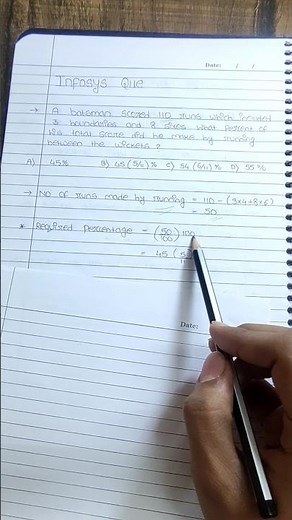 Date: / /
Infosys Que
→ A batsman scored 110 runs which included
3 boundaries and 8 sixes. What percent of
his total score did he make by running
between the wickets ?
A) 45% B) 45(5/11)% C) 54(6/11)% D) 55%
→ No of runs made by running = 110 - (3x4+8x6)
= 50
* Required Percentage = (50/100) 100
= 45 (
Date: